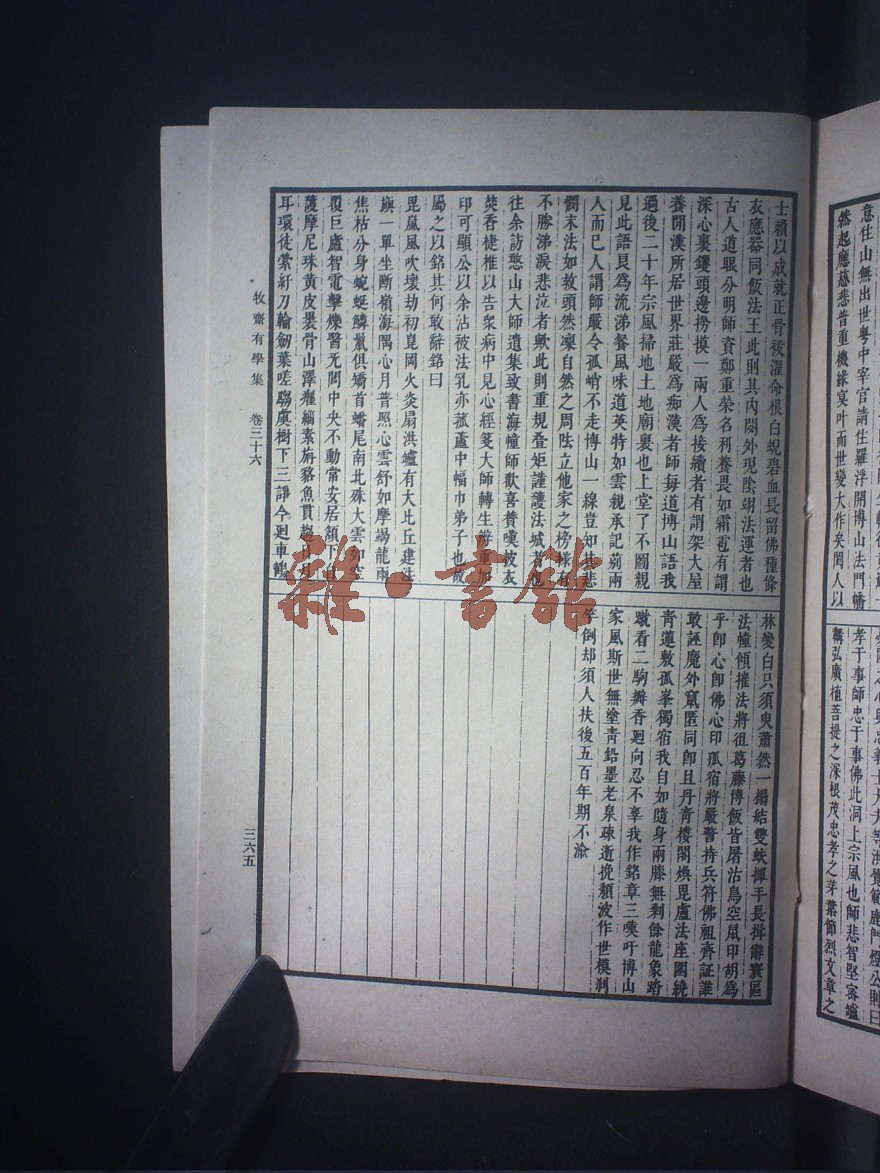 意住山無出世粵中宰官請住羅浮開博山法門幡
然起應慈悲昔重機緣冥叶而世變大作矣閩人以
孝于事師忠于事佛此洞上宗風也師悲智堅審爐
鞲弘廣植菩提之深根茂忠孝之芽葉節烈文章之
士賴以成就正骨祓濯命根白蜺碧血長留佛種條
衣應器同飯法王此則其內閟外現陰翊法運者也
古人道眼分明師資鄭重榮名利養畏如霜雹有謂
深心裏钁頭邊撈摸一兩人為接續者有謂架大屋
養閒漢所居世界莊嚴為癡漢者師每道博山語我
過後二十年宗風掃地土地廟裏也上堂了不圖親
見此語良為流涕餐風味道英特如雲親承記莂兩
人而已人謂師嚴令孤峭不走博山一線豈知其悲
憫末法如救頭然凜自然之周陸立他家之榜樣有
不勝涕淚悲泣者歟此則重規疊矩謹護法城者也
往余訪憨山大師遺集致書海幢師歡喜贊嘆披衣
焚香揵椎以告衆病中見心經箋大師轉生辦重加
印可顯公以余沾被法乳亦菰蘆中幅巾弟子也故
屬之以銘其何敢辭銘曰
毘嵐風吹壞劫初崑岡火炎扇洪爐有大比丘建法
旟一單坐斷嶺海隅心月普照心雲舒如摩竭龍雨
焦枯分身蜿蜒鱗鬣俱矯首蟠尾南北殊大雲如空
覆巨廬智電擊爍翳无間中央不動常安居頷下
護摩尼珠黃皮裹骨山澤癯緇素旃貉魚貫趨日月
耳環徒縈紆刀輪劒葉嗟騶虞樹下三諍今迴車鶴
林變白只須臾蕭然一搨結雙趺揮手長揖辭寰區
法幢傾摧法將徂葛藤博飯皆屠沽鳥空鼠印胡為
乎卽心卽佛心印孤宿將嚴警持兵符佛祖齊証誰
敢誣魔外竄匿同卽且丹青樓閣煥毘盧法座圍繞
青蓮敷孤峯獨宿我自如隨身兩膝無剩餘龍象蹜
蹴看二駒瓣香迴向忍不辜我作銘章三嘆吁博山
家風斯世無塗青鉛墨老泉疎逝挽頹波作世模刹
竿倒却須人扶後五百年期不渝
牧齋有學集 卷三十六
三六五
雜·書館